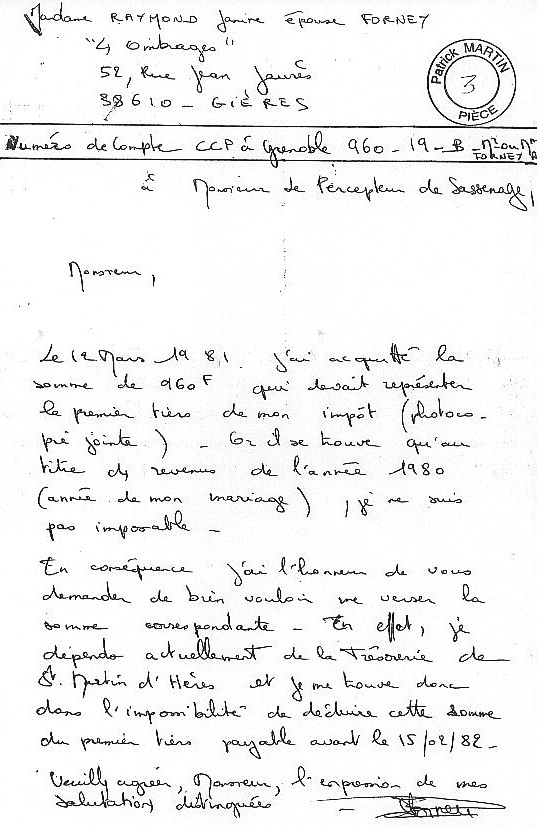 Madame RAYMOND Janine épouse FORNEY
"4 Ombrages"
52, Rue Jean Jaurès
38610 - GIÈRES
Patrick MARTIN
3
PIÈCE
Numéros de Compte CCP à Grenoble 960-19-B - Mr ou Mme
FORNEY
à Monsieur le Percepteur de Sassenage,
Monsieur,
Le 12 Mars 1981 j'ai acquitté la
somme de 960F qui devait représenter
le premier tiers de mon impôt (photoco-
pie jointe) - Or il se trouve qu'au
titre des revenus de l'année 1980
(année de mon mariage), je ne suis
pas imposable -
En conséquence j'ai l'honneur de vous
demander de bien vouloir me verser la
somme correspondante - En effet, je
dépends actuellement de la Trésorerie de
St. Martin d'Hères et je me trouve donc
dans l'impossibilité de déduire cette somme
du premier tiers payable avant le 15/02/82 -
Veuillez agréer, Monsieur, l'expression de mes
salutations distinguées -